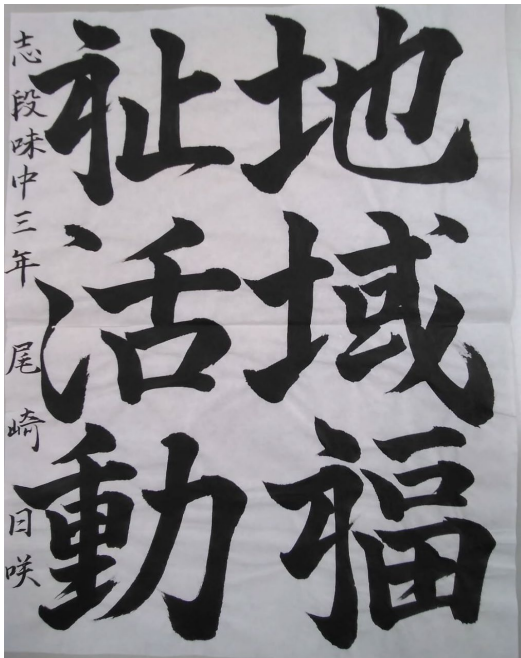 地域福
祉活動
志段味中三年 尾崎日咲